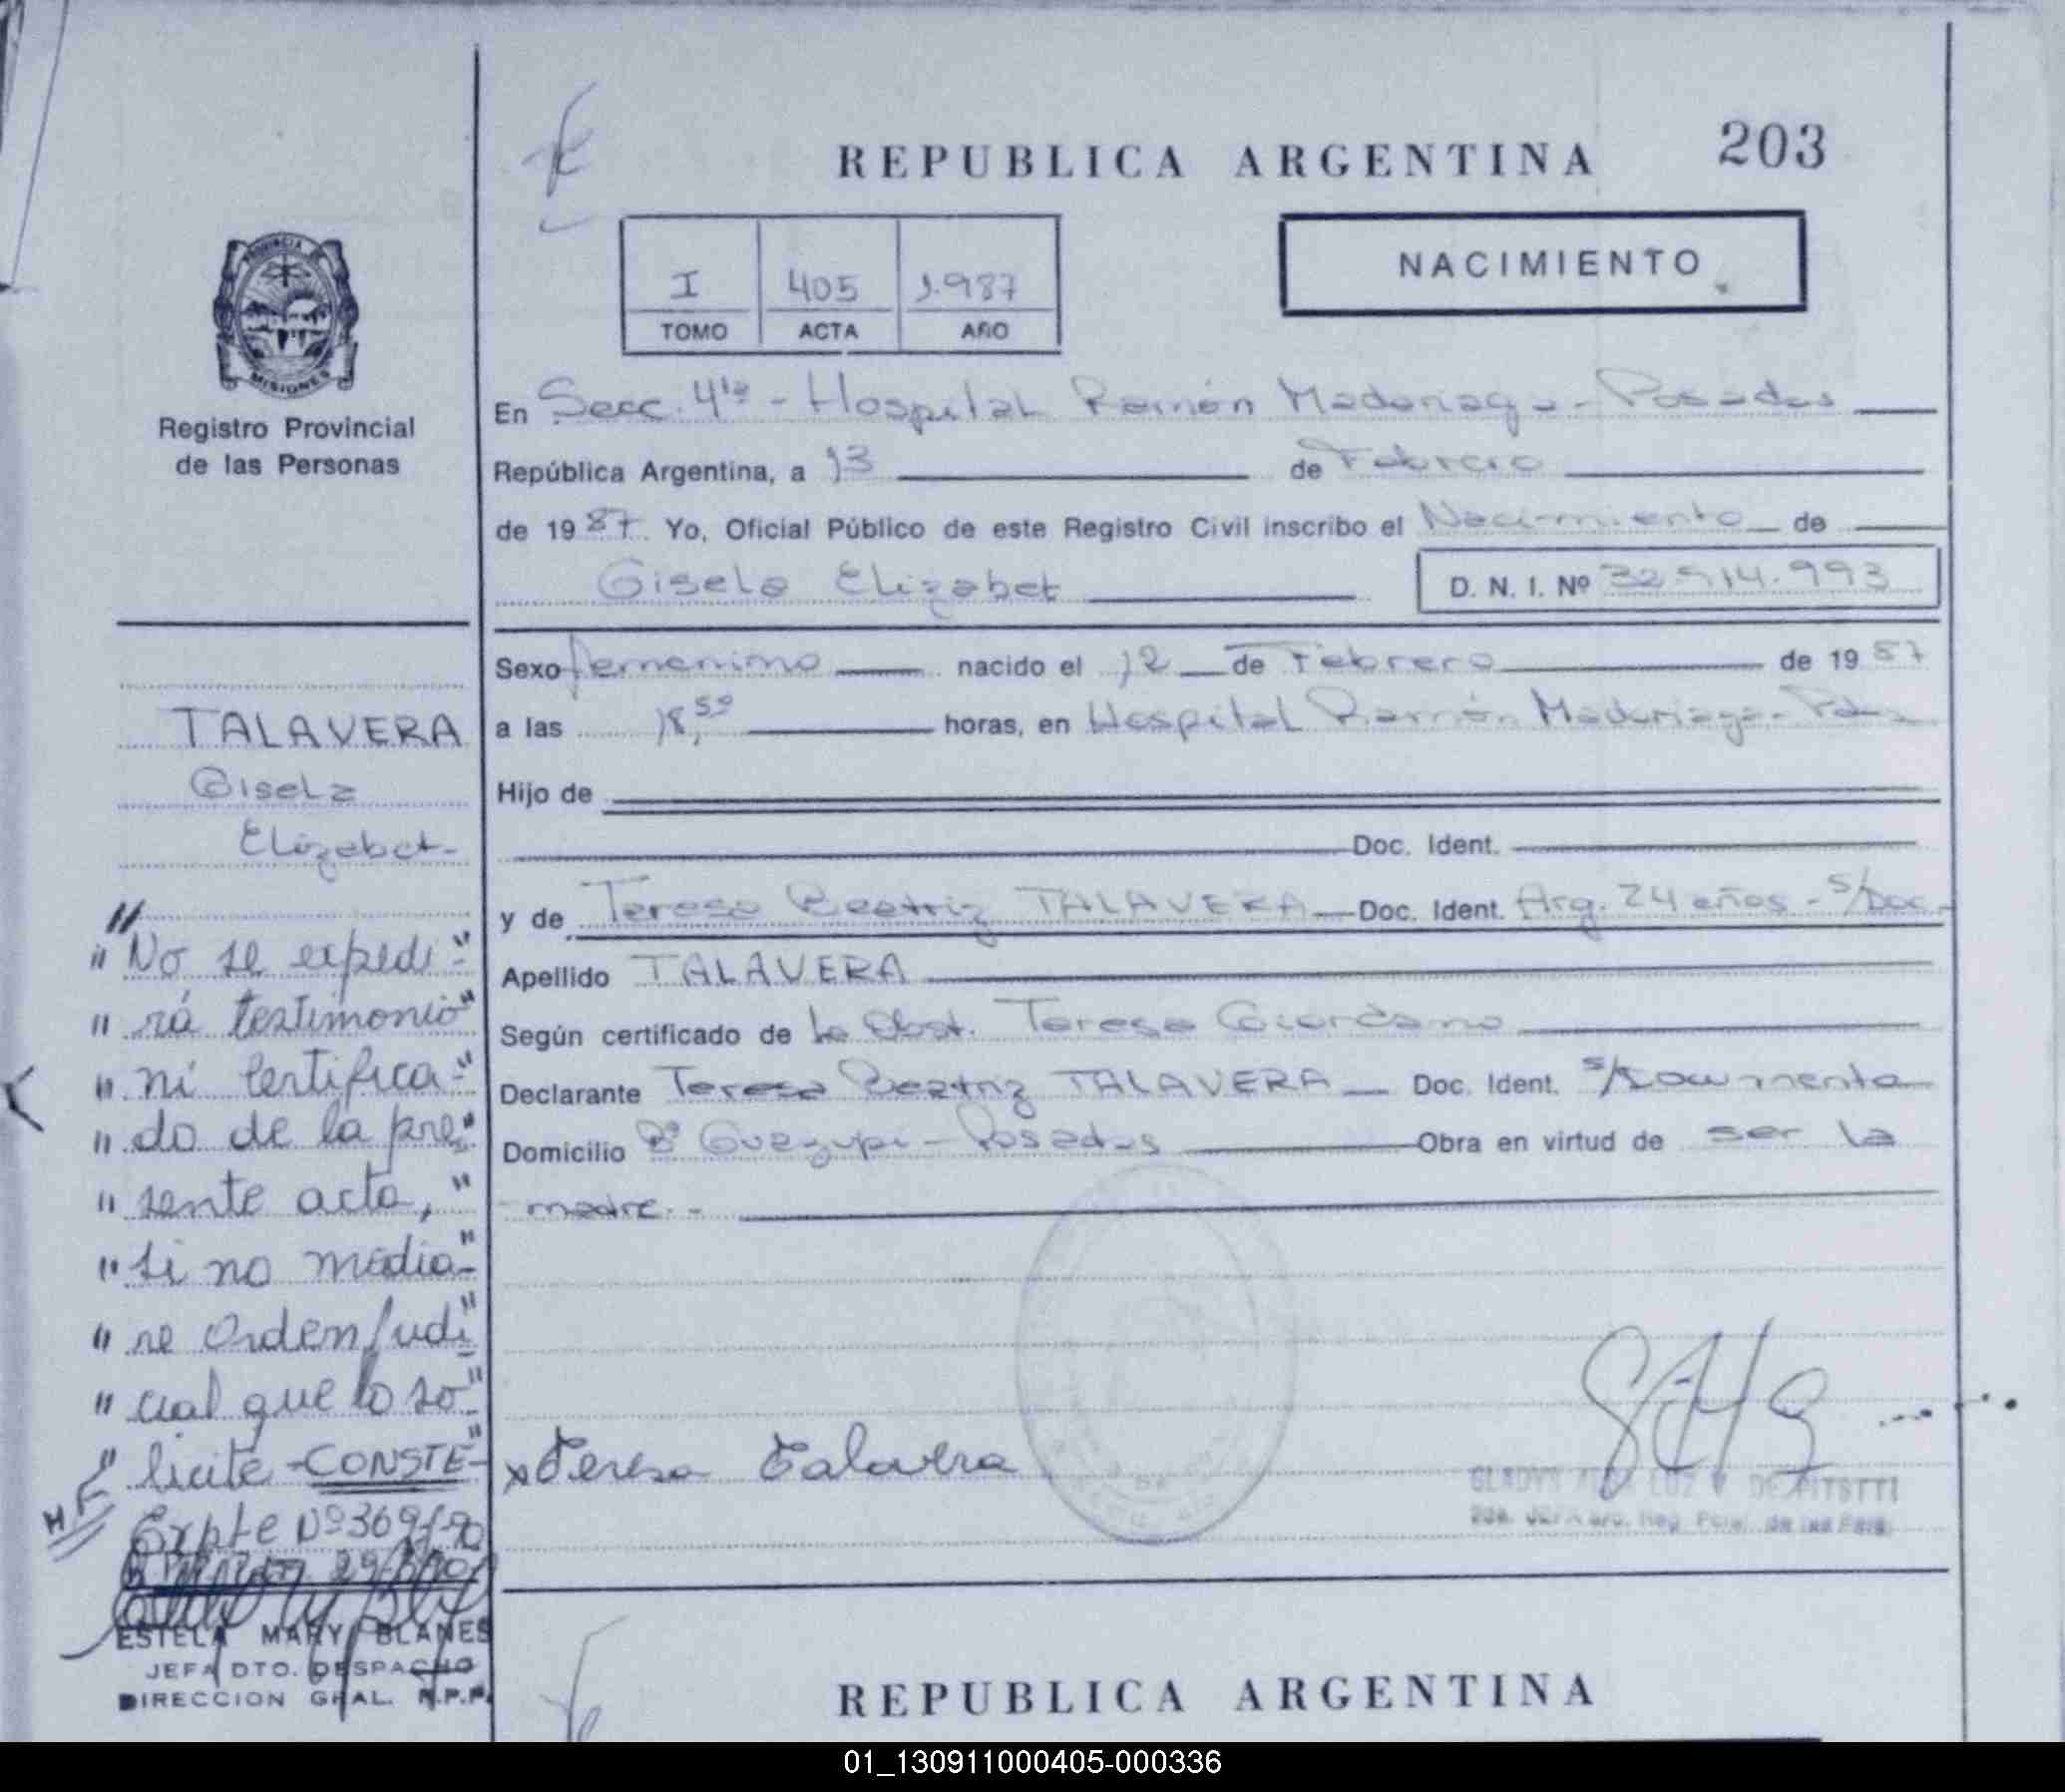 REPUBLICA ARGENTINA 203
PROVINCIA
MISIONES
Registro Provincial
de las Personas
I 405 1.987
TOMO ACTA AÑO
NACIMIENTO
En Secc. 4ta - Hospital Ramón Madariaga - Posadas
República Argentina, a 13 de Febrero
de 1987. Yo, Oficial Público de este Registro Civil inscribo el Nacimiento de
Gisela Elizabet D. N. I. Nº 32.914.993
Sexo femenino nacido el 12 de Febrero de 1987
a las 18,50 horas, en Hospital Ramón Madariaga - Pdas
Hijo de
Doc. Ident.
y de Teresa Beatriz TALAVERA Doc. Ident. Arg. 24 años - s/Doc.
Apellido TALAVERA
Según certificado de la Obst. Teresa Giordano
Declarante Teresa Beatriz TALAVERA Doc. Ident. s/documento
Domicilio Bº Guazupi - Posadas Obra en virtud de ser la
madre. -
x Teresa Talavera
GLADYS LUZ V. DE
TALAVERA
Gisela
Elizabet-
"
" No se expedi-"
" rá testimonio"
" ni certifica-"
" do de la pre-"
" sente acta, "
" si no media-"
" re Orden Judi"
" cial que lo so"
" licite - CONSTE-"
Expte Nº 369/-90
ESTELA MARY BLANES
JEFA DTO. DESPACHO
DIRECCION GRAL. R.P.P.
REPUBLICA ARGENTINA
01_130911000405-000336